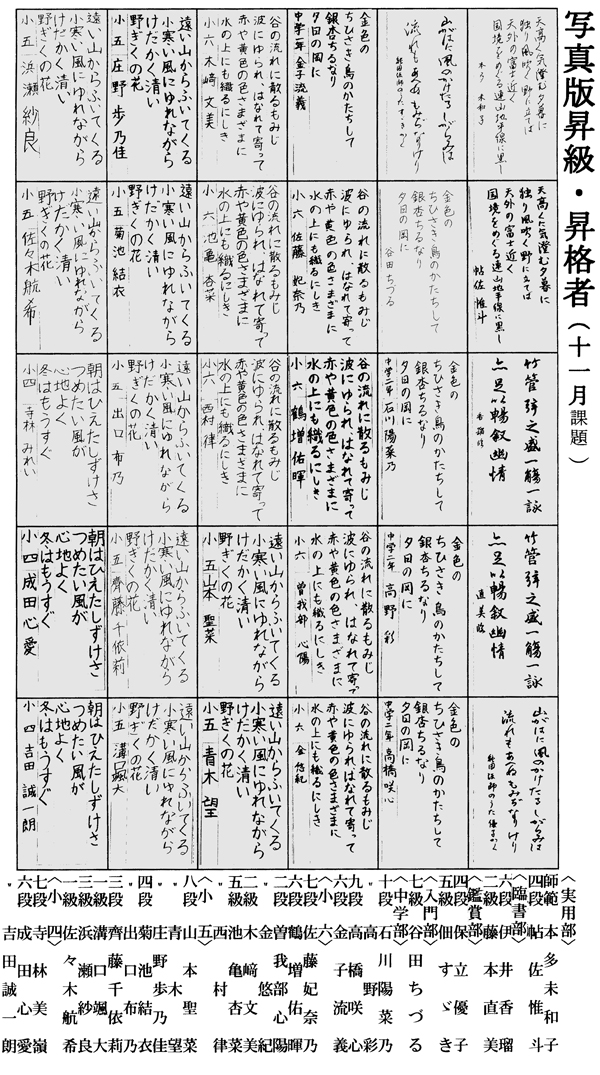 写真版昇級・昇格者(十一月課題)
天高く気澄む夕暮に
独り風吹く野に立てば
天外の富士近く
国境をめぐる連山地平線に黒し
本多未和子
天高く気澄む夕暮に
独り風吹く野に立てば
天外の富士近く
国境をめぐる連山地平線に黒し
帖佐惟斗
竹管弦之盛一觴一詠
亦足以暢叙幽情
香瑠臨
竹管弦之盛一觴一詠
亦足以暢叙幽情
直美臨
山がはに風のかけたるしがらみは
流れもあへぬもみぢなりけり
山がはに風のかけたるしがらみは
流れもあへぬもみぢなりけり
金色の
ちひさき鳥のかたちして
銀杏ちるなり
夕日の岡に
谷田ちづる
金色の
ちひさき鳥のかたちして
銀杏ちるなり
夕日の岡に
中学二年 石川陽菜乃
金色の
ちひさき鳥のかたちして
銀杏ちるなり
夕日の岡に
中学二年 高野彩
金色の
ちひさき鳥のかたちして
銀杏ちるなり
夕日の岡に
中学二年 高橋咲心
金色の
ちひさき鳥のかたちして
銀杏ちるなり
夕日の岡に
中学一年 金子流義
谷の流れに散るもみじ
波にゆられ、はなれて寄って
赤や黄色の色さまざまに
水の上にも織るにしき
小六 佐藤妃奈乃
谷の流れに散るもみじ
波にゆられ、はなれて寄って
赤や黄色の色さまざまに
水の上にも織るにしき
小六 鶴増佑暉
谷の流れに散るもみじ
波にゆられ、はなれて寄って
赤や黄色の色さまざまに
水の上にも織るにしき
小六 曽我部心陽
谷の流れに散るもみじ
波にゆられ、はなれて寄って
赤や黄色の色さまざまに
水の上にも織るにしき
小六 金悠紀
谷の流れに散るもみじ
波にゆられ、はなれて寄って
赤や黄色の色さまざまに
水の上にも織るにしき
小六 木﨑文美
谷の流れに散るもみじ
波にゆられ、はなれて寄って
赤や黄色の色さまざまに
水の上にも織るにしき
小六 池亀杏菜
谷の流れに散るもみじ
波にゆられ、はなれて寄って
赤や黄色の色さまざまに
水の上にも織るにしき
小六 西村律
遠い山からふいてくる
小寒い風にゆれながら
けだかく清い
野ぎくの花
小五 山本聖菜
遠い山からふいてくる
小寒い風にゆれながら
けだかく清い
野ぎくの花
小五 青木望
遠い山からふいてくる
小寒い風にゆれながら
けだかく清い
野ぎくの花
小五 庄野歩乃佳
遠い山からふいてくる
小寒い風にゆれながら
けだかく清い
野ぎくの花
小五 菊池結衣
遠い山からふいてくる
小寒い風にゆれながら
けだかく清い
野ぎくの花
小五 出口布乃
遠い山からふいてくる
小寒い風にゆれながら
けだかく清い
野ぎくの花
小五 齊藤千依莉
遠い山からふいてくる
小寒い風にゆれながら
けだかく清い
野ぎくの花
小五 溝口颯大
遠い山からふいてくる
小寒い風にゆれながら
けだかく清い
野ぎくの花
小五 浜瀬紗良
遠い山からふいてくる
小寒い風にゆれながら
けだかく清い
野ぎくの花
小五 佐々木航希
朝はひえたしずけさ
つめたい風が
心地よく
冬はもうすぐ
小四 寺林みれい
朝はひえたしずけさ
つめたい風が
心地よく
冬はもうすぐ
小四 成田心愛
朝はひえたしずけさ
つめたい風が
心地よく
冬はもうすぐ
小四 吉田誠一朗
〈実用部〉
師範 本多未和子
四段 帖佐惟斗
〈臨書部〉
六段 伊井香瑠
二級 藤本直美
〈鑑賞部〉
四段 保立優子
五級 佃すゞき
〈入門部〉
七級 谷田ちづる
〈中学部〉
十段 石川陽菜乃
〃 高野彩
九段 高橋咲心
六段 金子流義
〈小六〉
七段 佐藤妃奈乃
六段 鶴増佑暉
〃 曽我部心陽
二段 金悠紀
一級 木﨑文美
五級 池亀杏菜
〃 西村律
〈小五〉
八段 山本聖菜
〃 青木望
〃 庄野歩乃佳
四段 菊池結衣
〃 出口布乃
三段 齊藤千依莉
一級 溝口颯大
三級 浜瀬紗良
一級 佐々木航希
〈小四〉
七段 寺林美嶺
六段 成田心愛
〃 吉田誠一朗